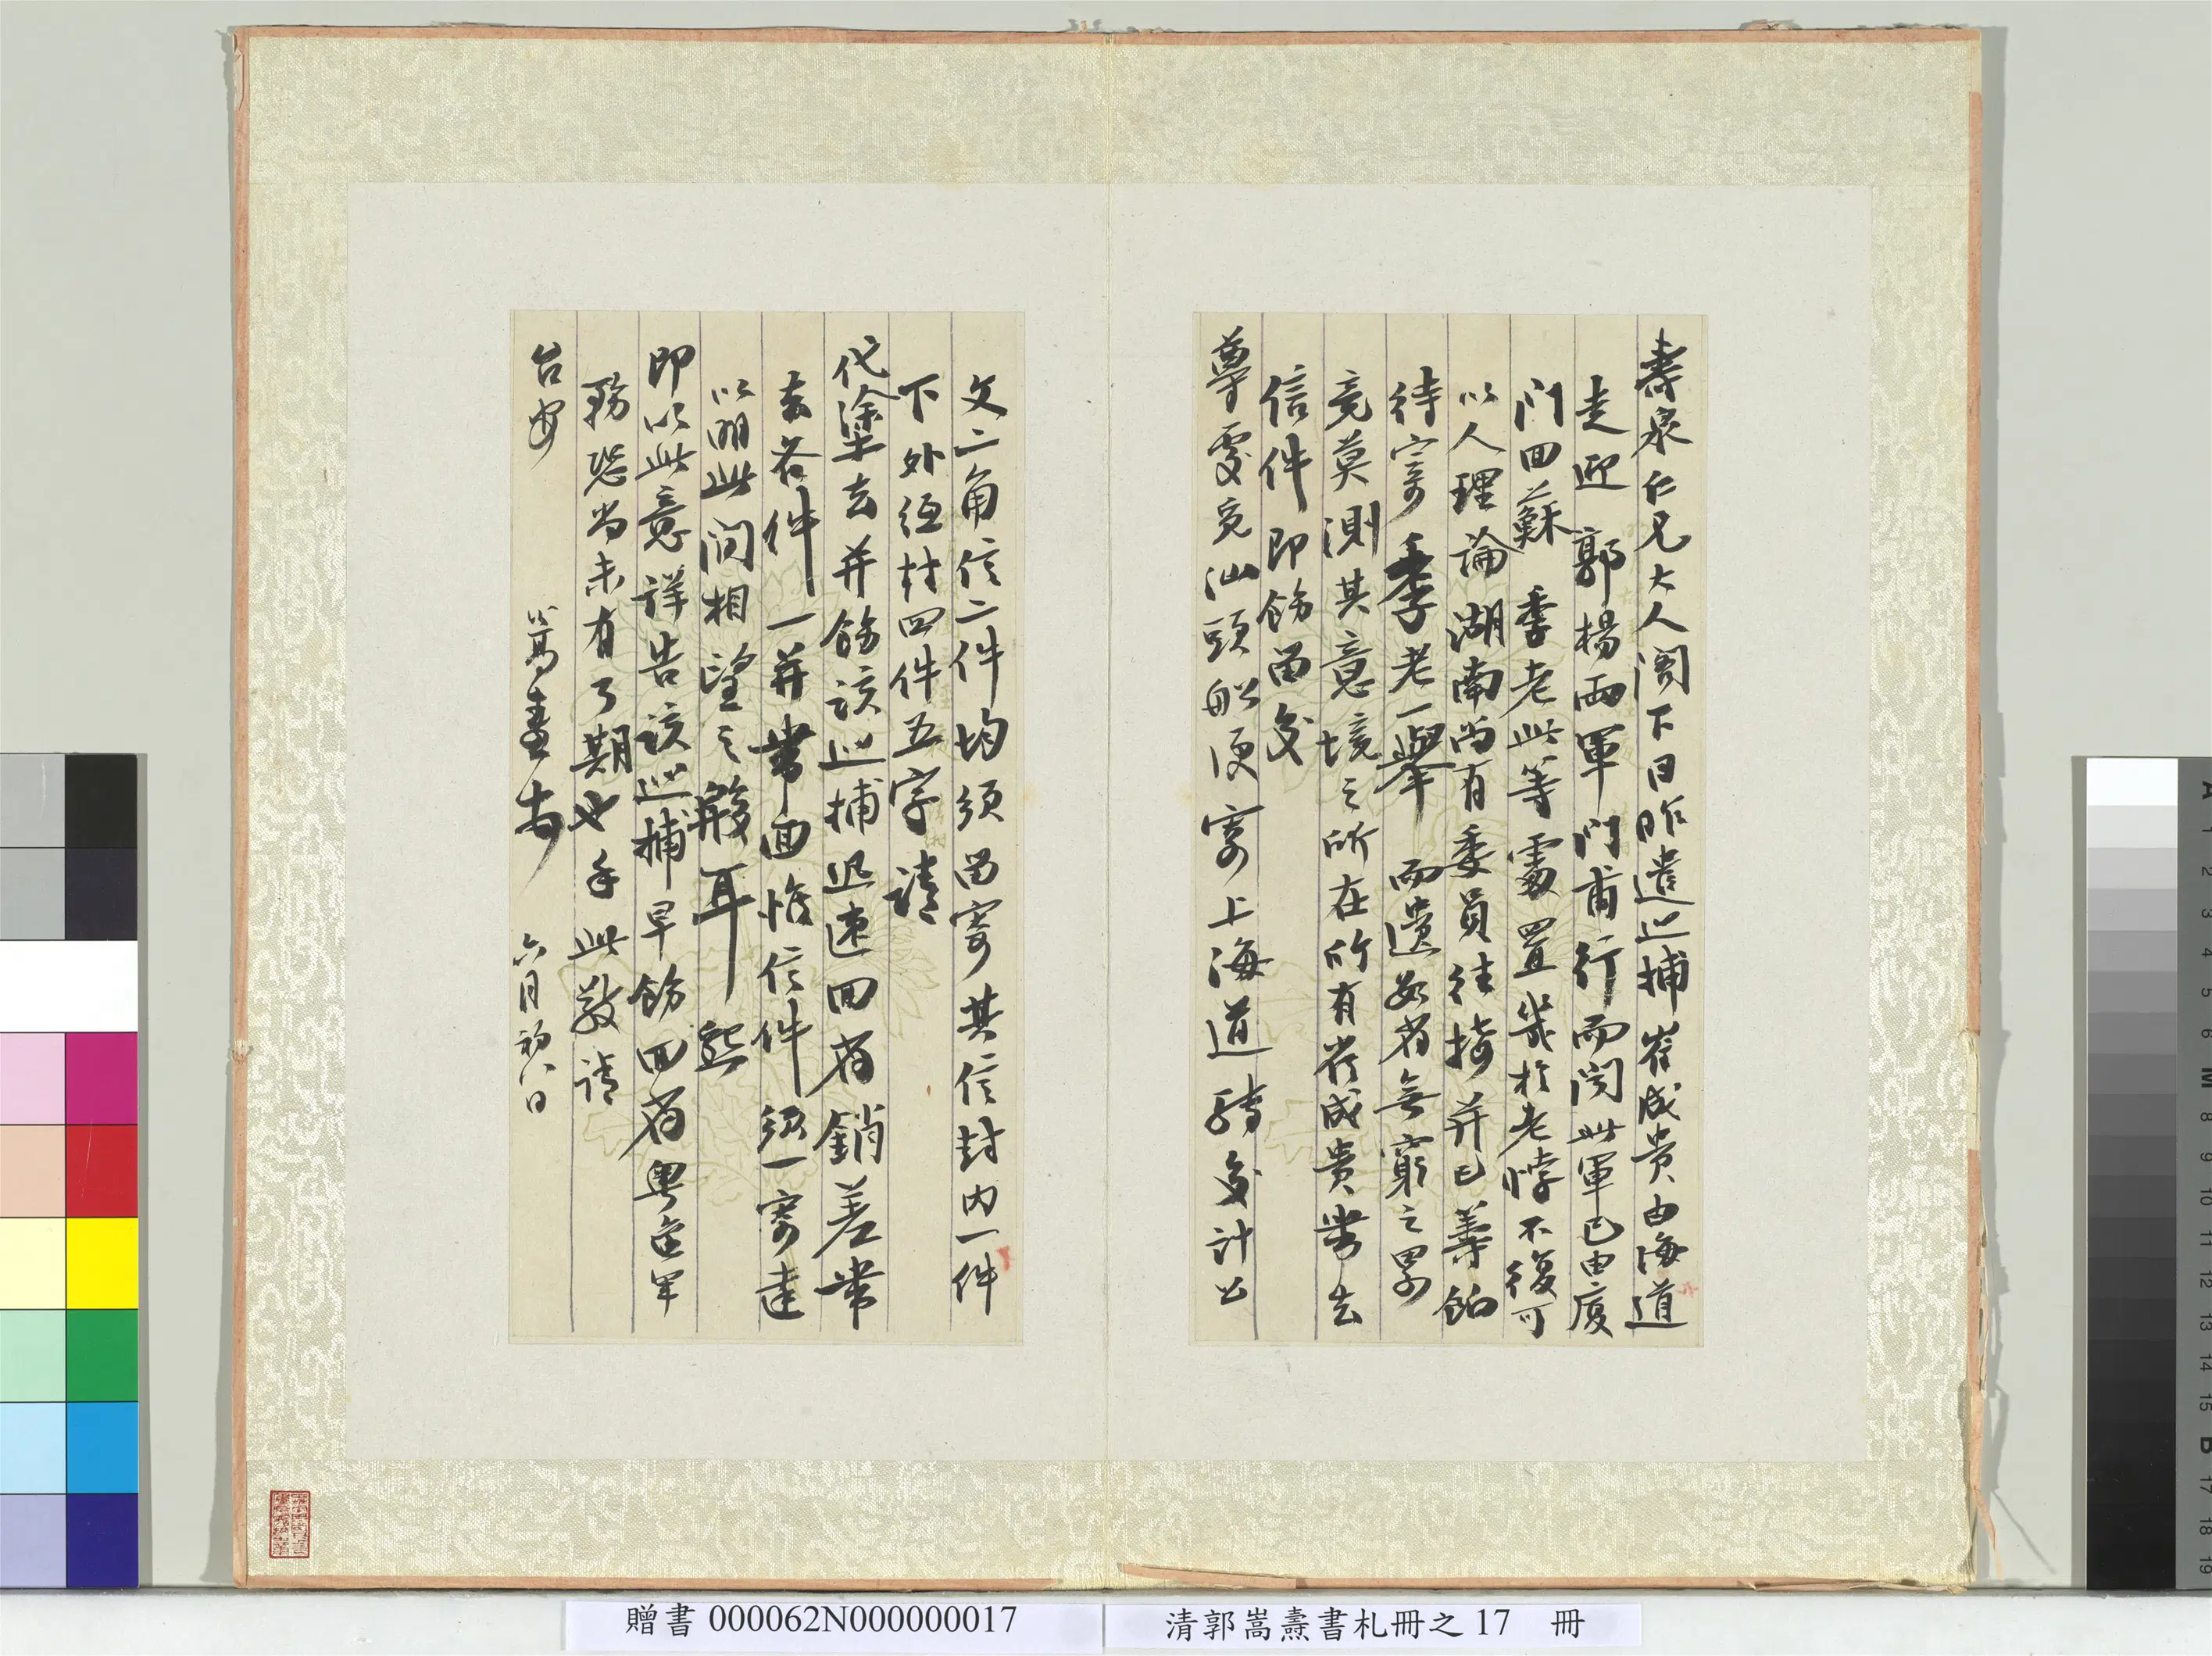 壽泉仁兄大人閣下日昨遣巡捕崔成貴由海道
走迎 郭楊兩軍門甫行而聞此軍已由廈
門回蘇 季老此等處置幾於老悖不復可
以人理論湖南尚有委員往接并已籌餉
待寄 季老一舉 而遺數省無窮之累
竟莫測其意境之所在所有崔成貴帶去
信件即飭留交
尊處竟汕頭船便寄上海道轉交計公
文二角信二件均須留寄其信封內一件
下外 封四件五字 請
代塗去并飭該巡捕迅速回省銷差帶
去各件一并帶回惟信件須一寄達
以明此間相望之殷耳 熙
即以此意詳告該巡捕早飭回省粵 軍
務恐尚未有了期也手此敬請
台安
嵩燾 六月初八日
贈書 000062N000000017
清郭嵩燾書札冊之 17 冊